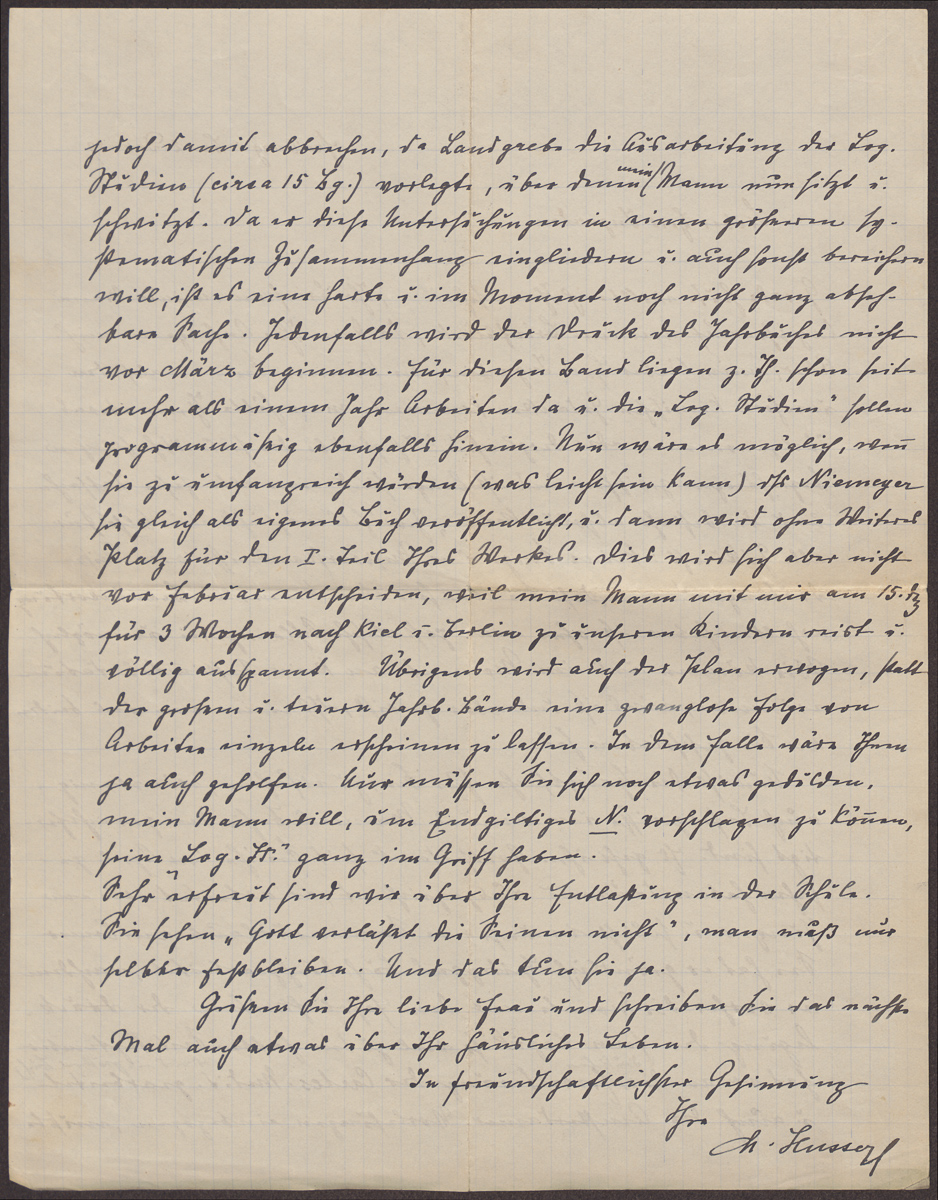 jedoch damit abbrechen, da Landgrebe die Ausarbeitung der Log.
Studien (circa 15 Bg.) vorlegte, über denen mein Mann nun sitzt u.
schwitzt. Da er diese Untersuchungen in einen größeren sy-
stematischen Zusammenhang eingliedern u. auch sonst bereichern
will, ist es eine harte u. im Moment noch nicht ganz abseh-
bare Sache. Jedenfalls wird der Druck des Jahrbuches nicht
vor März beginnen. Für diesen Band liegen z. Th. schon seit
mehr als einem Jahr Arbeiten da u. die „Log. Studien" sollen
programmäßig ebenfalls hinein. Nun wäre es möglich, weñ
sie zu umfangreich würden (was leicht sein kann) dſs Niemeyer
sie gleich als eigenes Buch veröffentlicht, u. dann wird ohne Weiteres
Platz für den I. Teil Ihres Werkes. Dies wird sich aber nicht
vor Februar entscheiden, weil mein Mann mit mir am 15. Dez
für 3 Wochen nach Kiel u. Berlin zu unseren Kindern reist u.
völlig ausspannt. Übrigens wird auch der Plan erwogen, statt
der großen u. teuern Jahrb. Bände eine zwanglose Folge von
Arbeiten einzeln erscheinen zu lassen. In dem Falle wäre Ihnen
ja auch geholfen. Nur müssen Sie sich noch etwas gedulden,
mein Mann will, um Endgiltiges N. vorschlagen zu köñen,
seine „Log. St." ganz im Griff haben.
Sehr erfreut sind wir über Ihre Entlastung in der Schule.
Sie sehen „Gott verläßt die Seinen nicht", man muß nur
selber festbleiben. Und das tun Sie ja.
Grüßen Sie Ihre liebe Frau und schreiben Sie das nächste
Mal auch etwas über Ihr häusliches Leben.
In freundschaftlichster Gesinnung
Ihre
M. Husserl